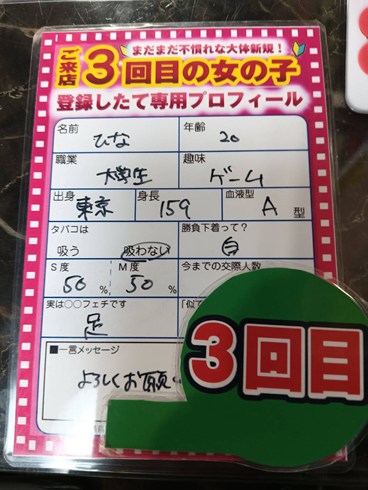 まだまだ不慣れな大体新規!
ご来店3回目の女の子
登録したて専用プロフィール
名前 ひな 年齢 20
職業 大学生 趣味 ゲーム
出身 東京 身長 159 血液型 A 型
タバコは 勝負下着って?
吸う 吸わない 白
S度 50% M度 50% 今までの交際人数
実は○○フェチです 「似て
足
■一言メッセージ
よろしくお願い
3回目